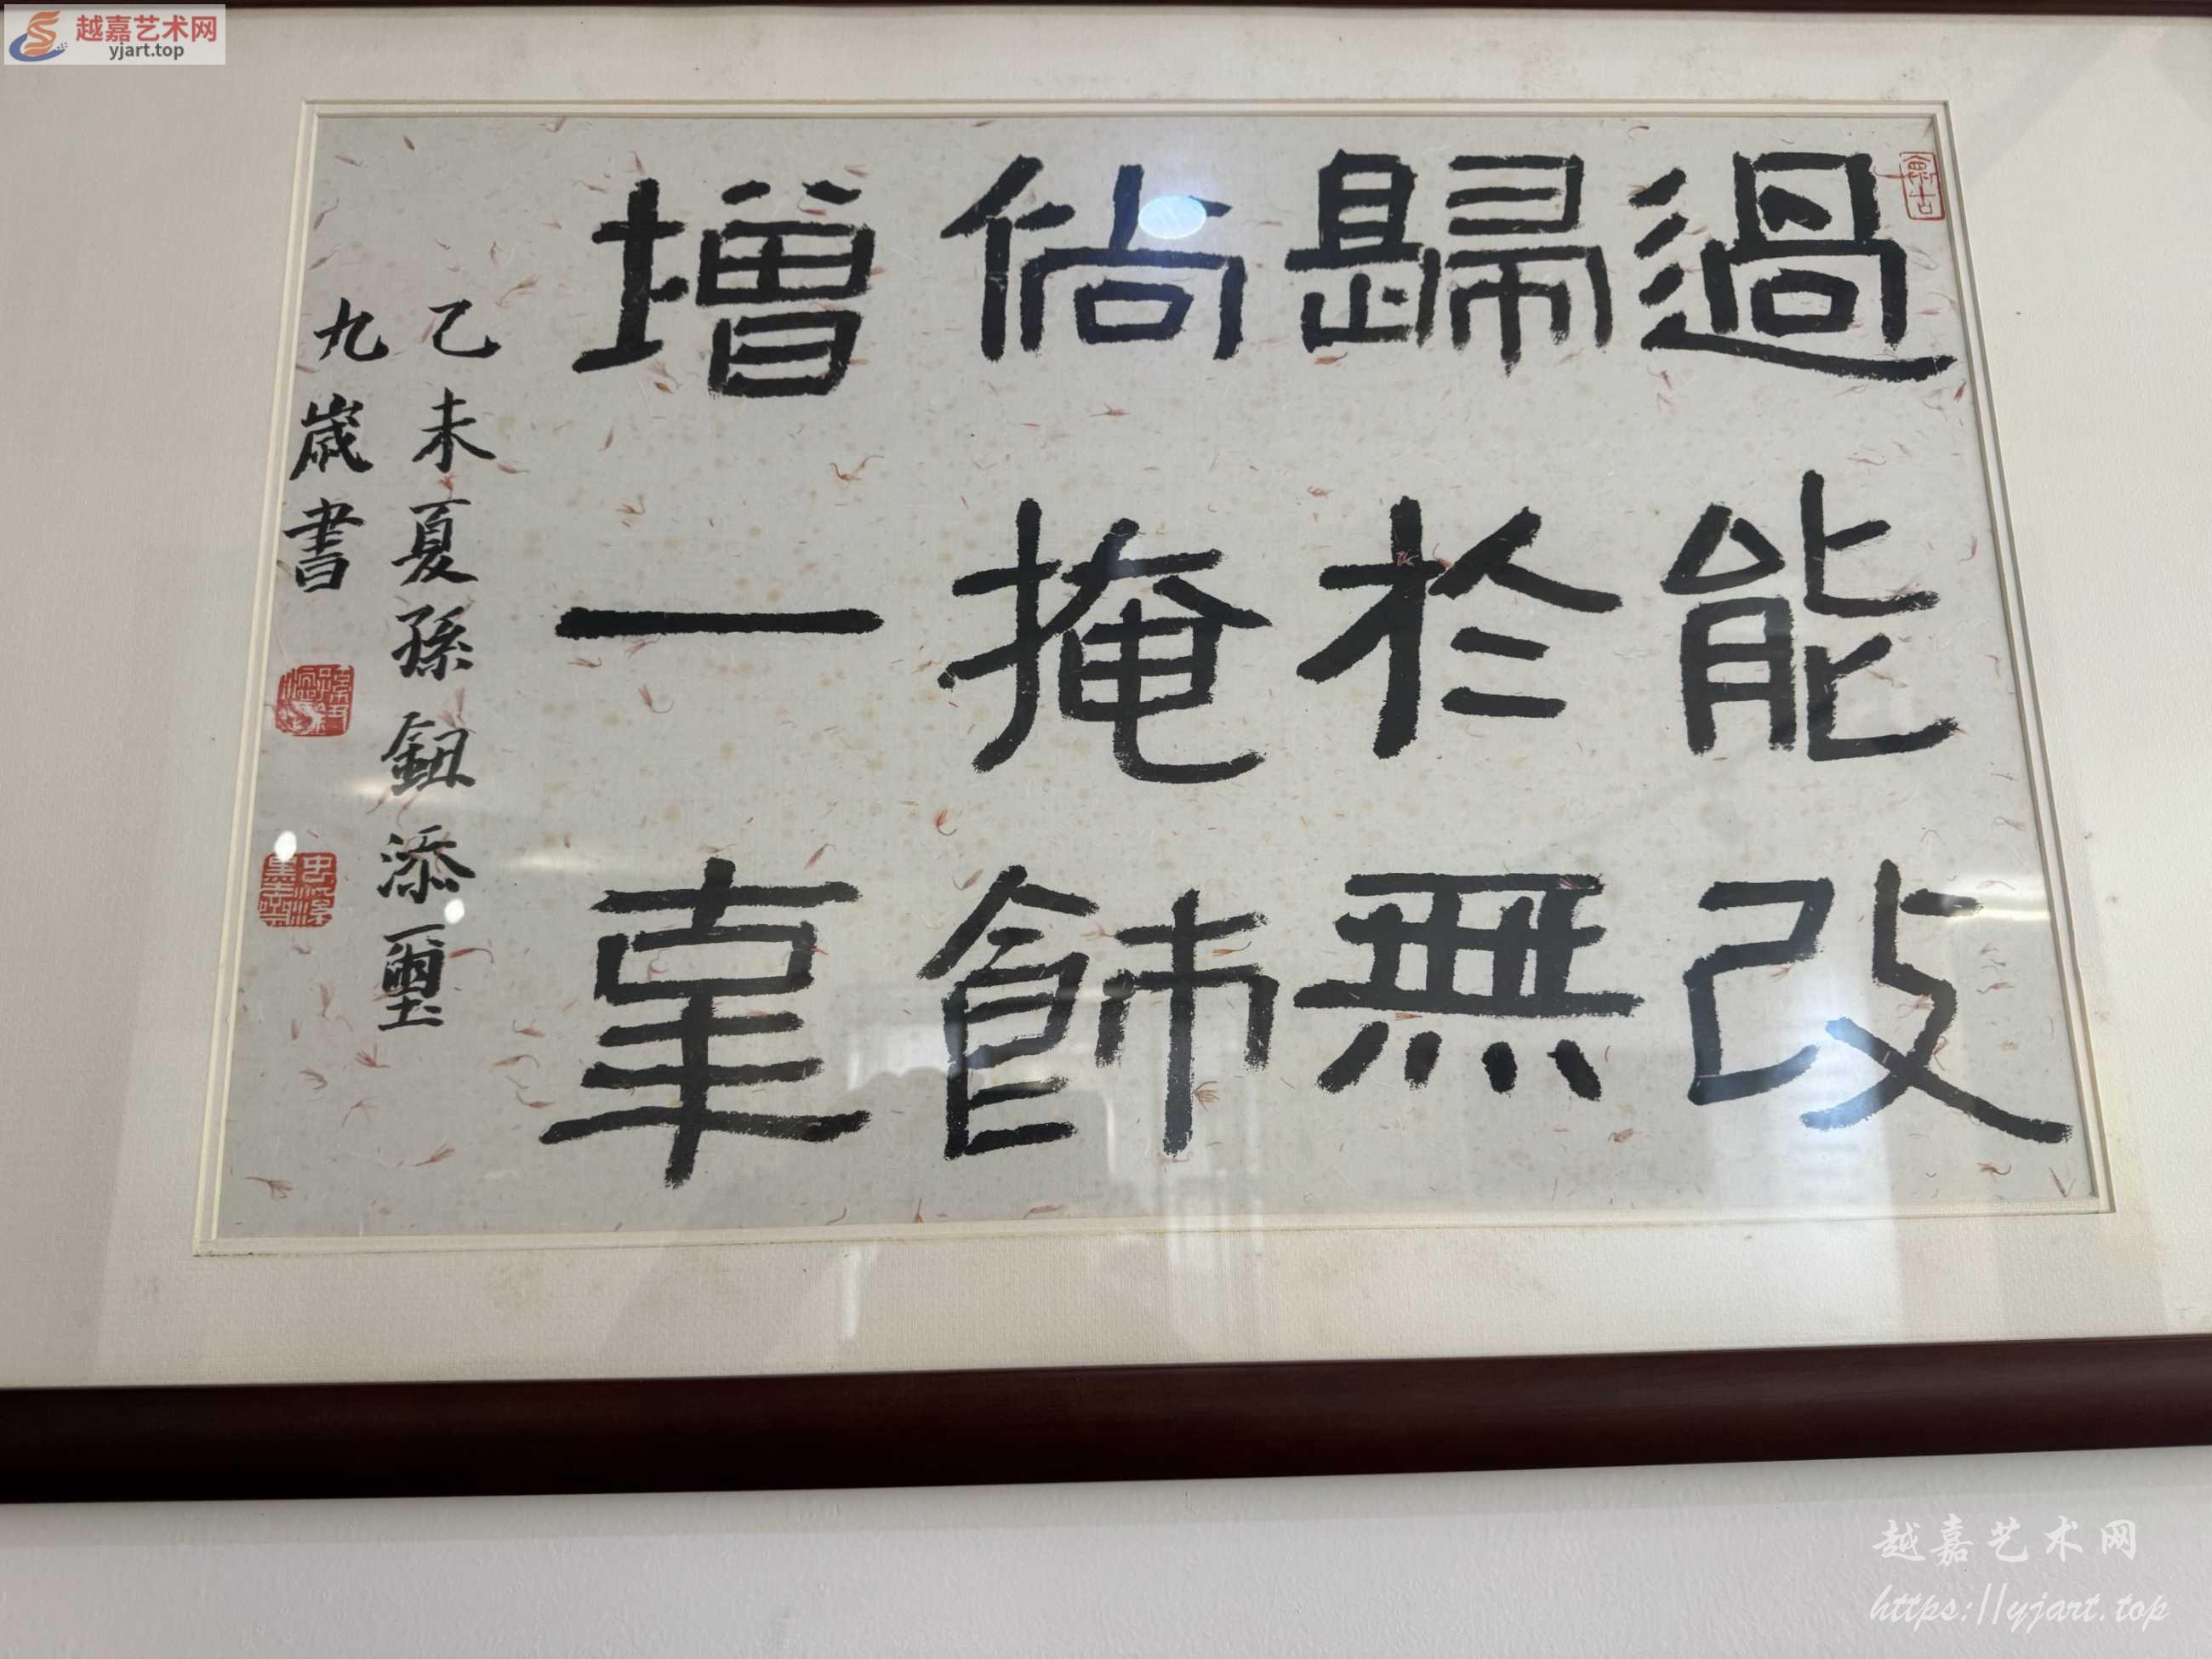 越嘉艺术网
yjart.top
過能改
歸於無
倘掩飾
增一辜
乙未夏孫鈕添璽
九歲書
越嘉艺术网
https://yjart.top